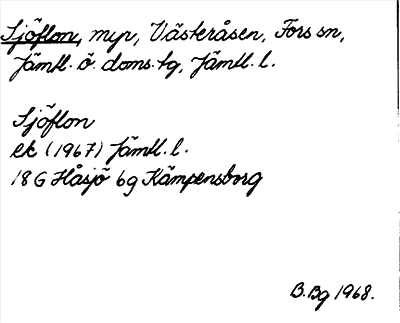 Sjöflon, myr, Västeråsen, Fors sn,
Jämtl. ö. doms.tg, Jämtl. l.
Sjöflon
ek (1967) Jämtl. l.
18 G Håsjö 6g Kämpensborg
B.Bg 1968.